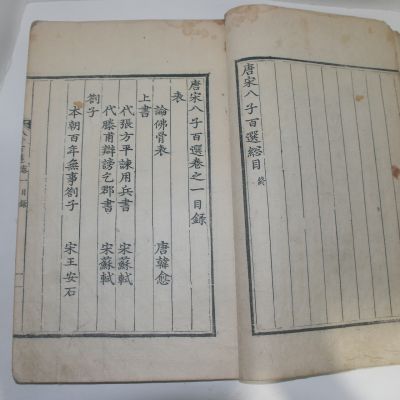 唐宋八子百選緫目 終
唐宋八子百選卷之一目錄
表
論佛骨表 唐韓愈
上書
代張方平諫用兵書 宋蘇軾
代滕甫辯謗乞郡書 宋蘇軾
劄子
本朝百年無事劄子 宋王安石
八子百選卷一 目錄